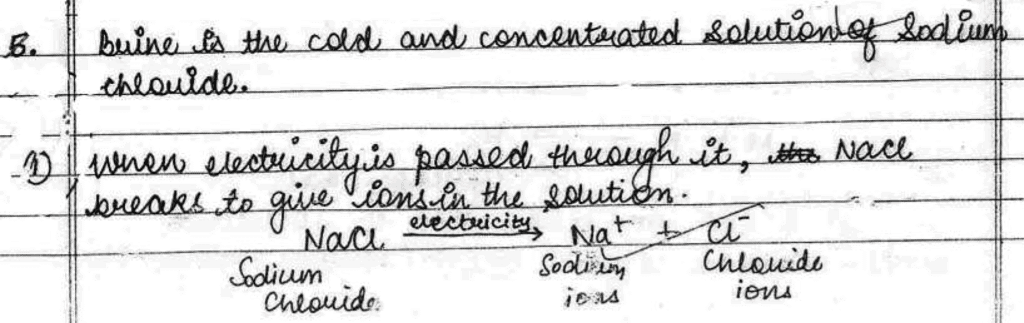 5. Brine is the cold and concentrated solution of Sodium
chloride.
1) When electricity is passed through it, the NaCl
breaks to give ions in the solution.
NaCl electricity→ Na⁺ + Cl⁻
Sodium Chloride Sodium ions Chloride ions